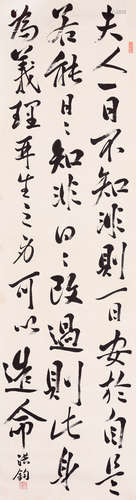 夫人一日不知非則一日安於自是
若能日〻知非日〻改過則此身
為義理再生之身可以造命
洪鈞